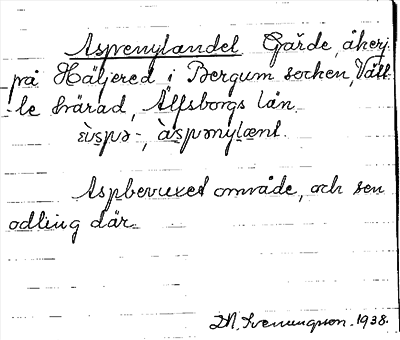 Aspenylandel Gärde, åker,
på Häljered i Bergum socken, Vätt-
-le härad, Älfsborgs län.
ὲvspə-, àspənylænt.
Aspbevuxet område, och sen
odling där.
D.N. Svenungsson. 1938.